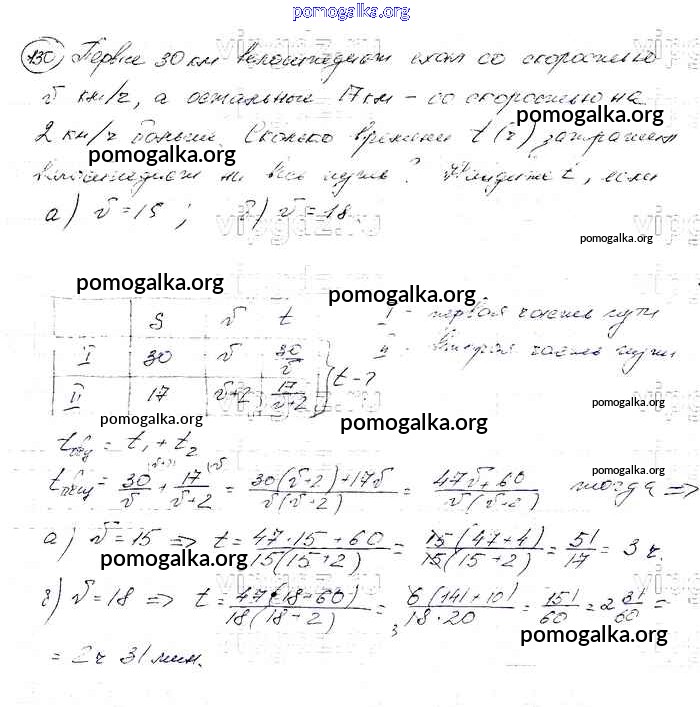 pomogalka.org
130) Первые 30 км велосипедист ехал со скоростью
v км/ч, а остальные 17 км - со скоростью на
2 км/ч больше. Сколько времени t (ч) затратил
pomogalka.org
велосипедист на весь путь? Найдите t, если
а) v = 15 ; б) v = 18.
pomogalka.org
pomogalka.org
pomogalka.org
S v t
I 30 v 30/v
II 17 v+2 17/(v+2)
t - ?
I - первая часть пути
II - вторая часть пути
pomogalka.org
pomogalka.org
pomogalka.org
t общ = t1 + t2
t общ = 30/v + 17/(v+2) = (30(v+2)+17v)/(v(v+2)) = (47v+60)/(v(v+2)) тогда =>
pomogalka.org
а) v = 15 => t = (47·15+60)/(15(15+2)) = (15(47+4))/(15(15+2)) = 51/17 = 3 ч.
pomogalka.org
б) v = 18 => t = (47(18+60)/(18(18+2) = (6(141+10))/(18·20) = 151/60 = 2 31/60 =
pomogalka.org
= 2ч 31 мин.